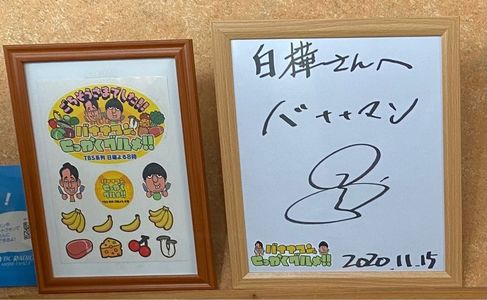 ごちそうさまでした!!
バナナマンの
せっかくグルメ!!
TBS系列 日曜よる8時
バナナマンの
せっかくグルメ!!
白樺さんへ
バナナマン
バナナマンの
せっかくグルメ!!
2020.11.15